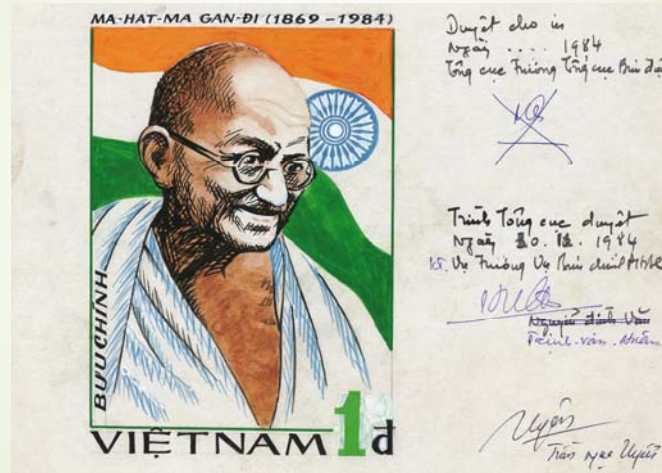 MA-HAT-MA GAN-ĐI (1869-1984)
BƯU CHÍNH
VIỆTNAM 1đ
Duyệt cho in
Ngày .... 1984
Tổng cục Trưởng Tổng cục Bưu điện
Trình Tổng cục duyệt
Ngày 1984
Vụ Trưởng Vụ Bưu chính
Nguyễn đình Vân
Trịnh.văn.
Trần ngọc Uyển